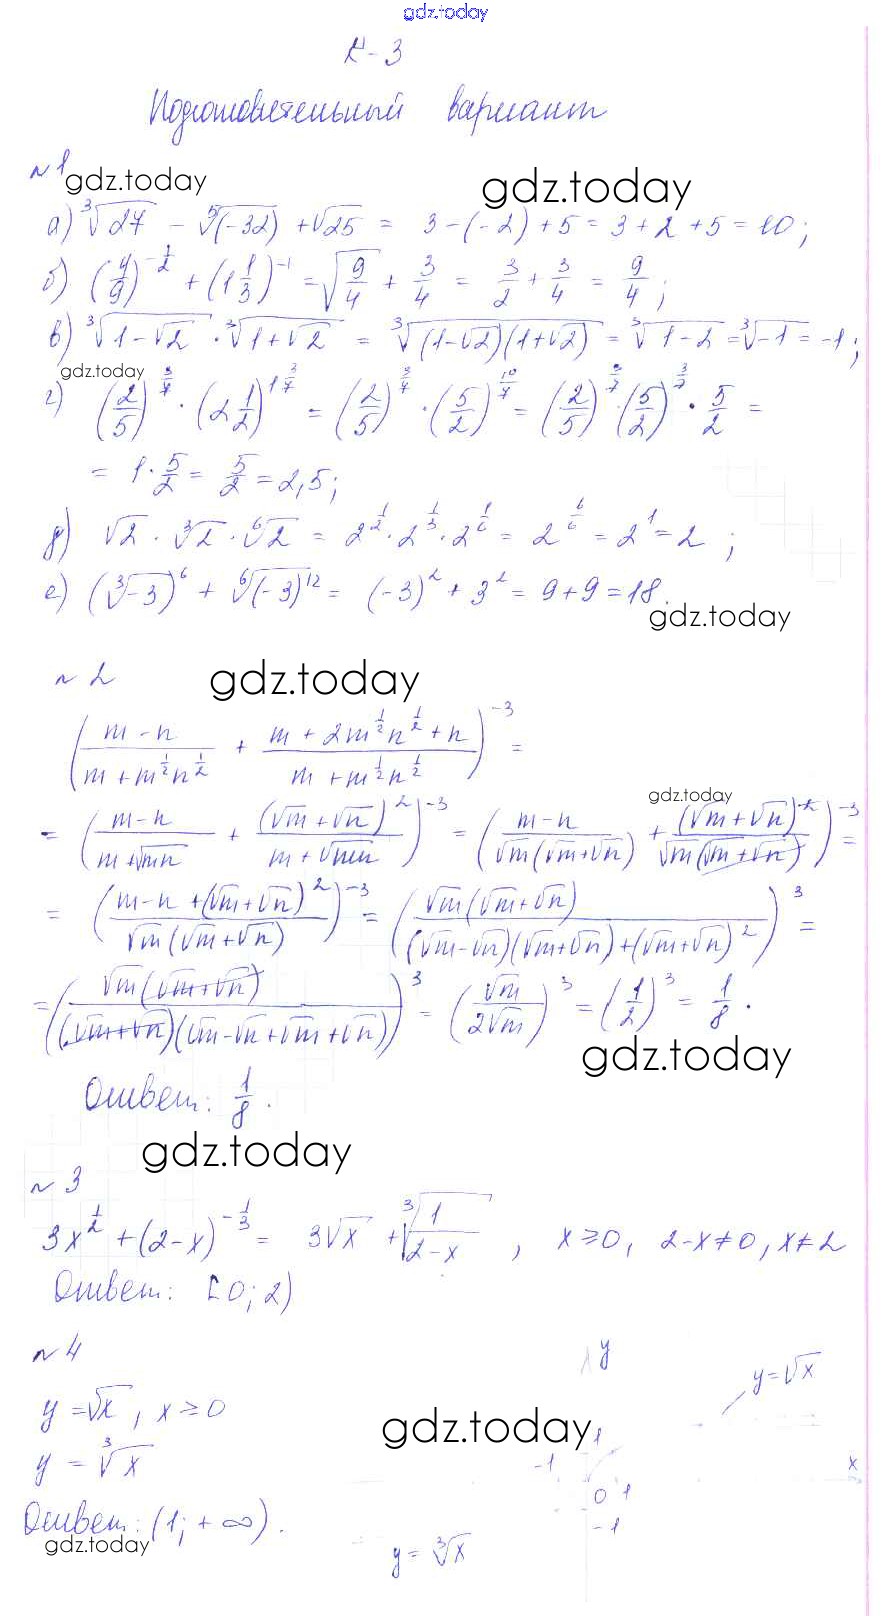 gdz.today
К-3
Подготовительный вариант
№1
gdz.today
gdz.today
а) ∛27 − ⁵√(−32) + √25 = 3 − (−2) + 5 = 3 + 2 + 5 = 10;
б) (4/9)^(−1/2) + (1 1/3)^(−1) = √(9/4) + 3/4 = 3/2 + 3/4 = 9/4;
в) ∛(1−√2) · ∛(1+√2) = ∛((1−√2)(1+√2)) = ∛(1−2) = ∛(−1) = −1;
gdz.today
г) (2/5)^(3/7) · (2 1/2)^(1 3/7) = (2/5)^(3/7) · (5/2)^(10/7) = (2/5)^(3/7) (5/2)^(3/7) · 5/2 =
= 1 · 5/2 = 5/2 = 2,5;
д) √2 · ∛2 · ⁶√2 = 2^(1/2) · 2^(1/3) · 2^(1/6) = 2^(6/6) = 2^1 = 2;
е) (∛−3)^6 + ⁶√(−3)^12 = (−3)^2 + 3^2 = 9 + 9 = 18.
gdz.today
№2
gdz.today
((m−n)/(m+m^(1/2)n^(1/2)) + (m+2m^(1/2)n^(1/2)+n)/(m+m^(1/2)n^(1/2)))^(−3) =
gdz.today
= ((m−n)/(m+√mn) + (√m+√n)^2/(m+√mn))^(−3) = ((m−n)/(√m(√m+√n)) + (√m+√n)^2/(√m(√m+√n)))^(−3) =
= ((m−n+(√m+√n)^2)/(√m(√m+√n)))^(−3) = (√m(√m+√n)/((√m−√n)(√m+√n)+(√m+√n)^2))^3 =
= (√m(√m+√n)/((√m+√n)(√m−√n+√m+√n)))^3 = (√m/2√m)^3 = (1/2)^3 = 1/8.
gdz.today
Ответ: 1/8.
gdz.today
№3
3x^(1/2) + (2−x)^(−1/3) = 3√x + ∛(1/(2−x)), x ≥ 0, 2−x ≠ 0, x ≠ 2
Ответ: [0; 2)
№4
y
y = √x
y = √x, x ≥ 0
gdz.today
1
−1
x
y = ∛x
0 1
Ответ: (1; +∞).
−1
gdz.today
y = ∛x